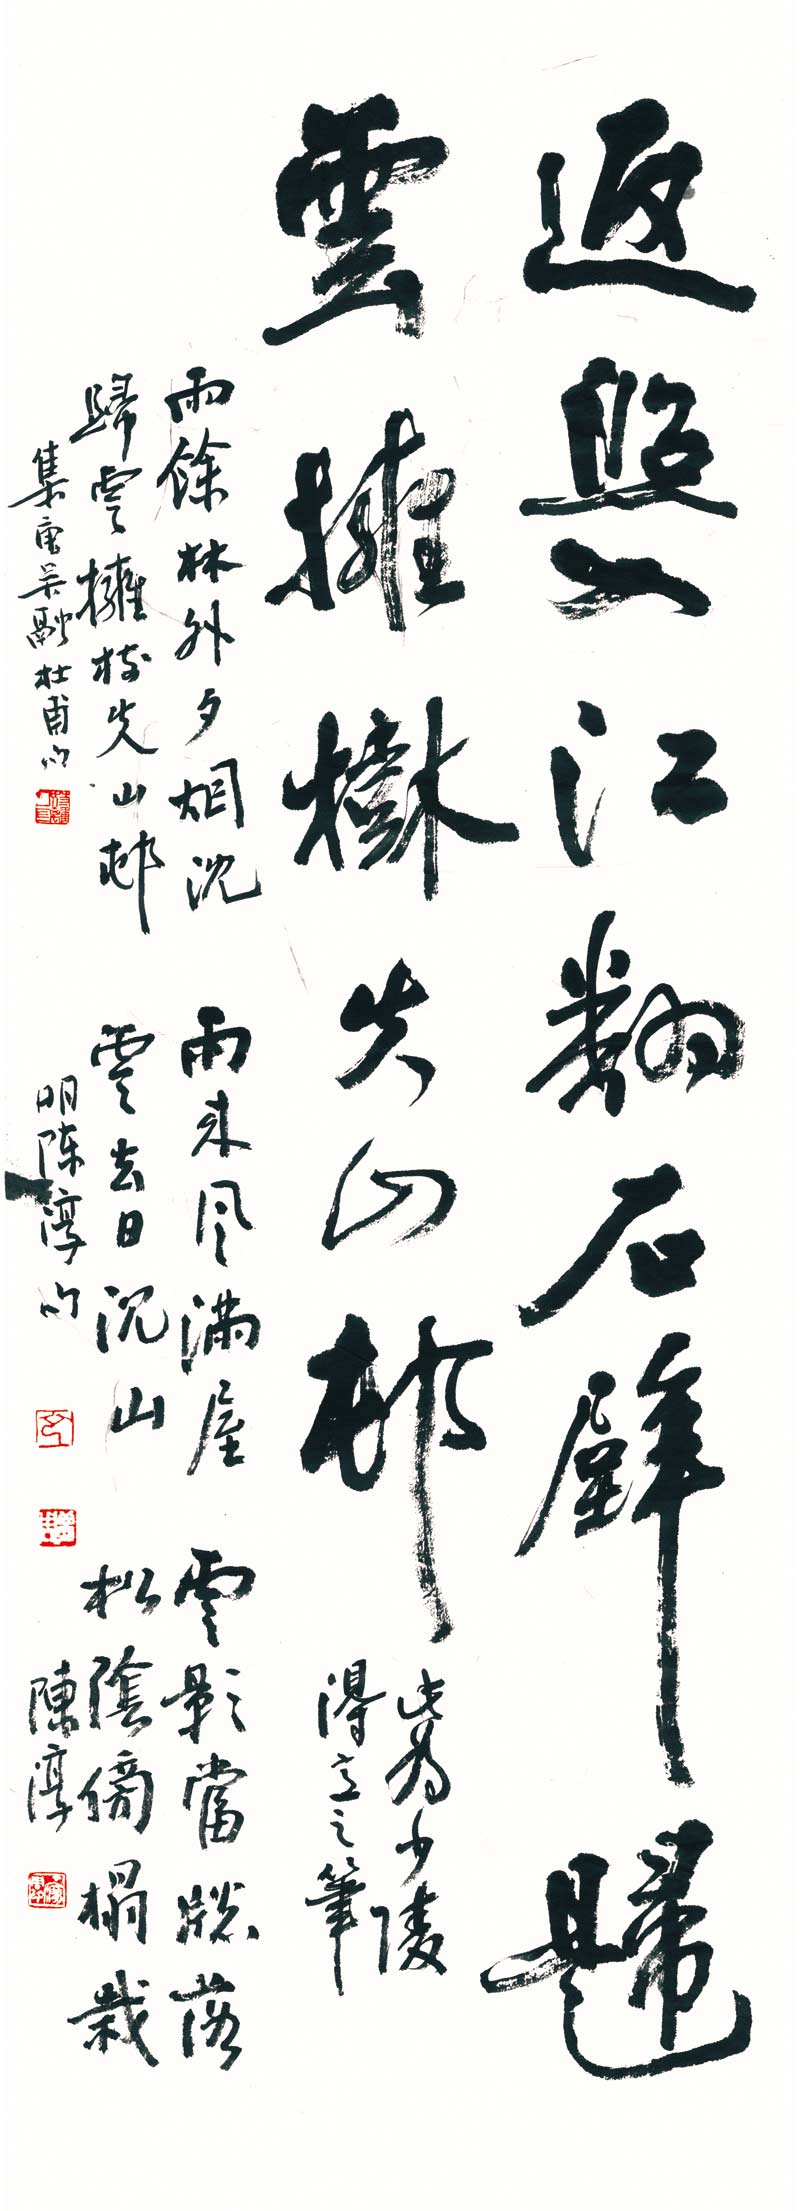 返照入江翻石壁歸
雲擁樹失山邨
此為少陵
得意之筆
雨餘林外夕烟沈
歸雲擁樹失山邨
集唐吴融杜甫句
雨來風滿屋
雲去日沉山
明陈淳句
雲影當牕落
松陰傍榻栽
陳淳